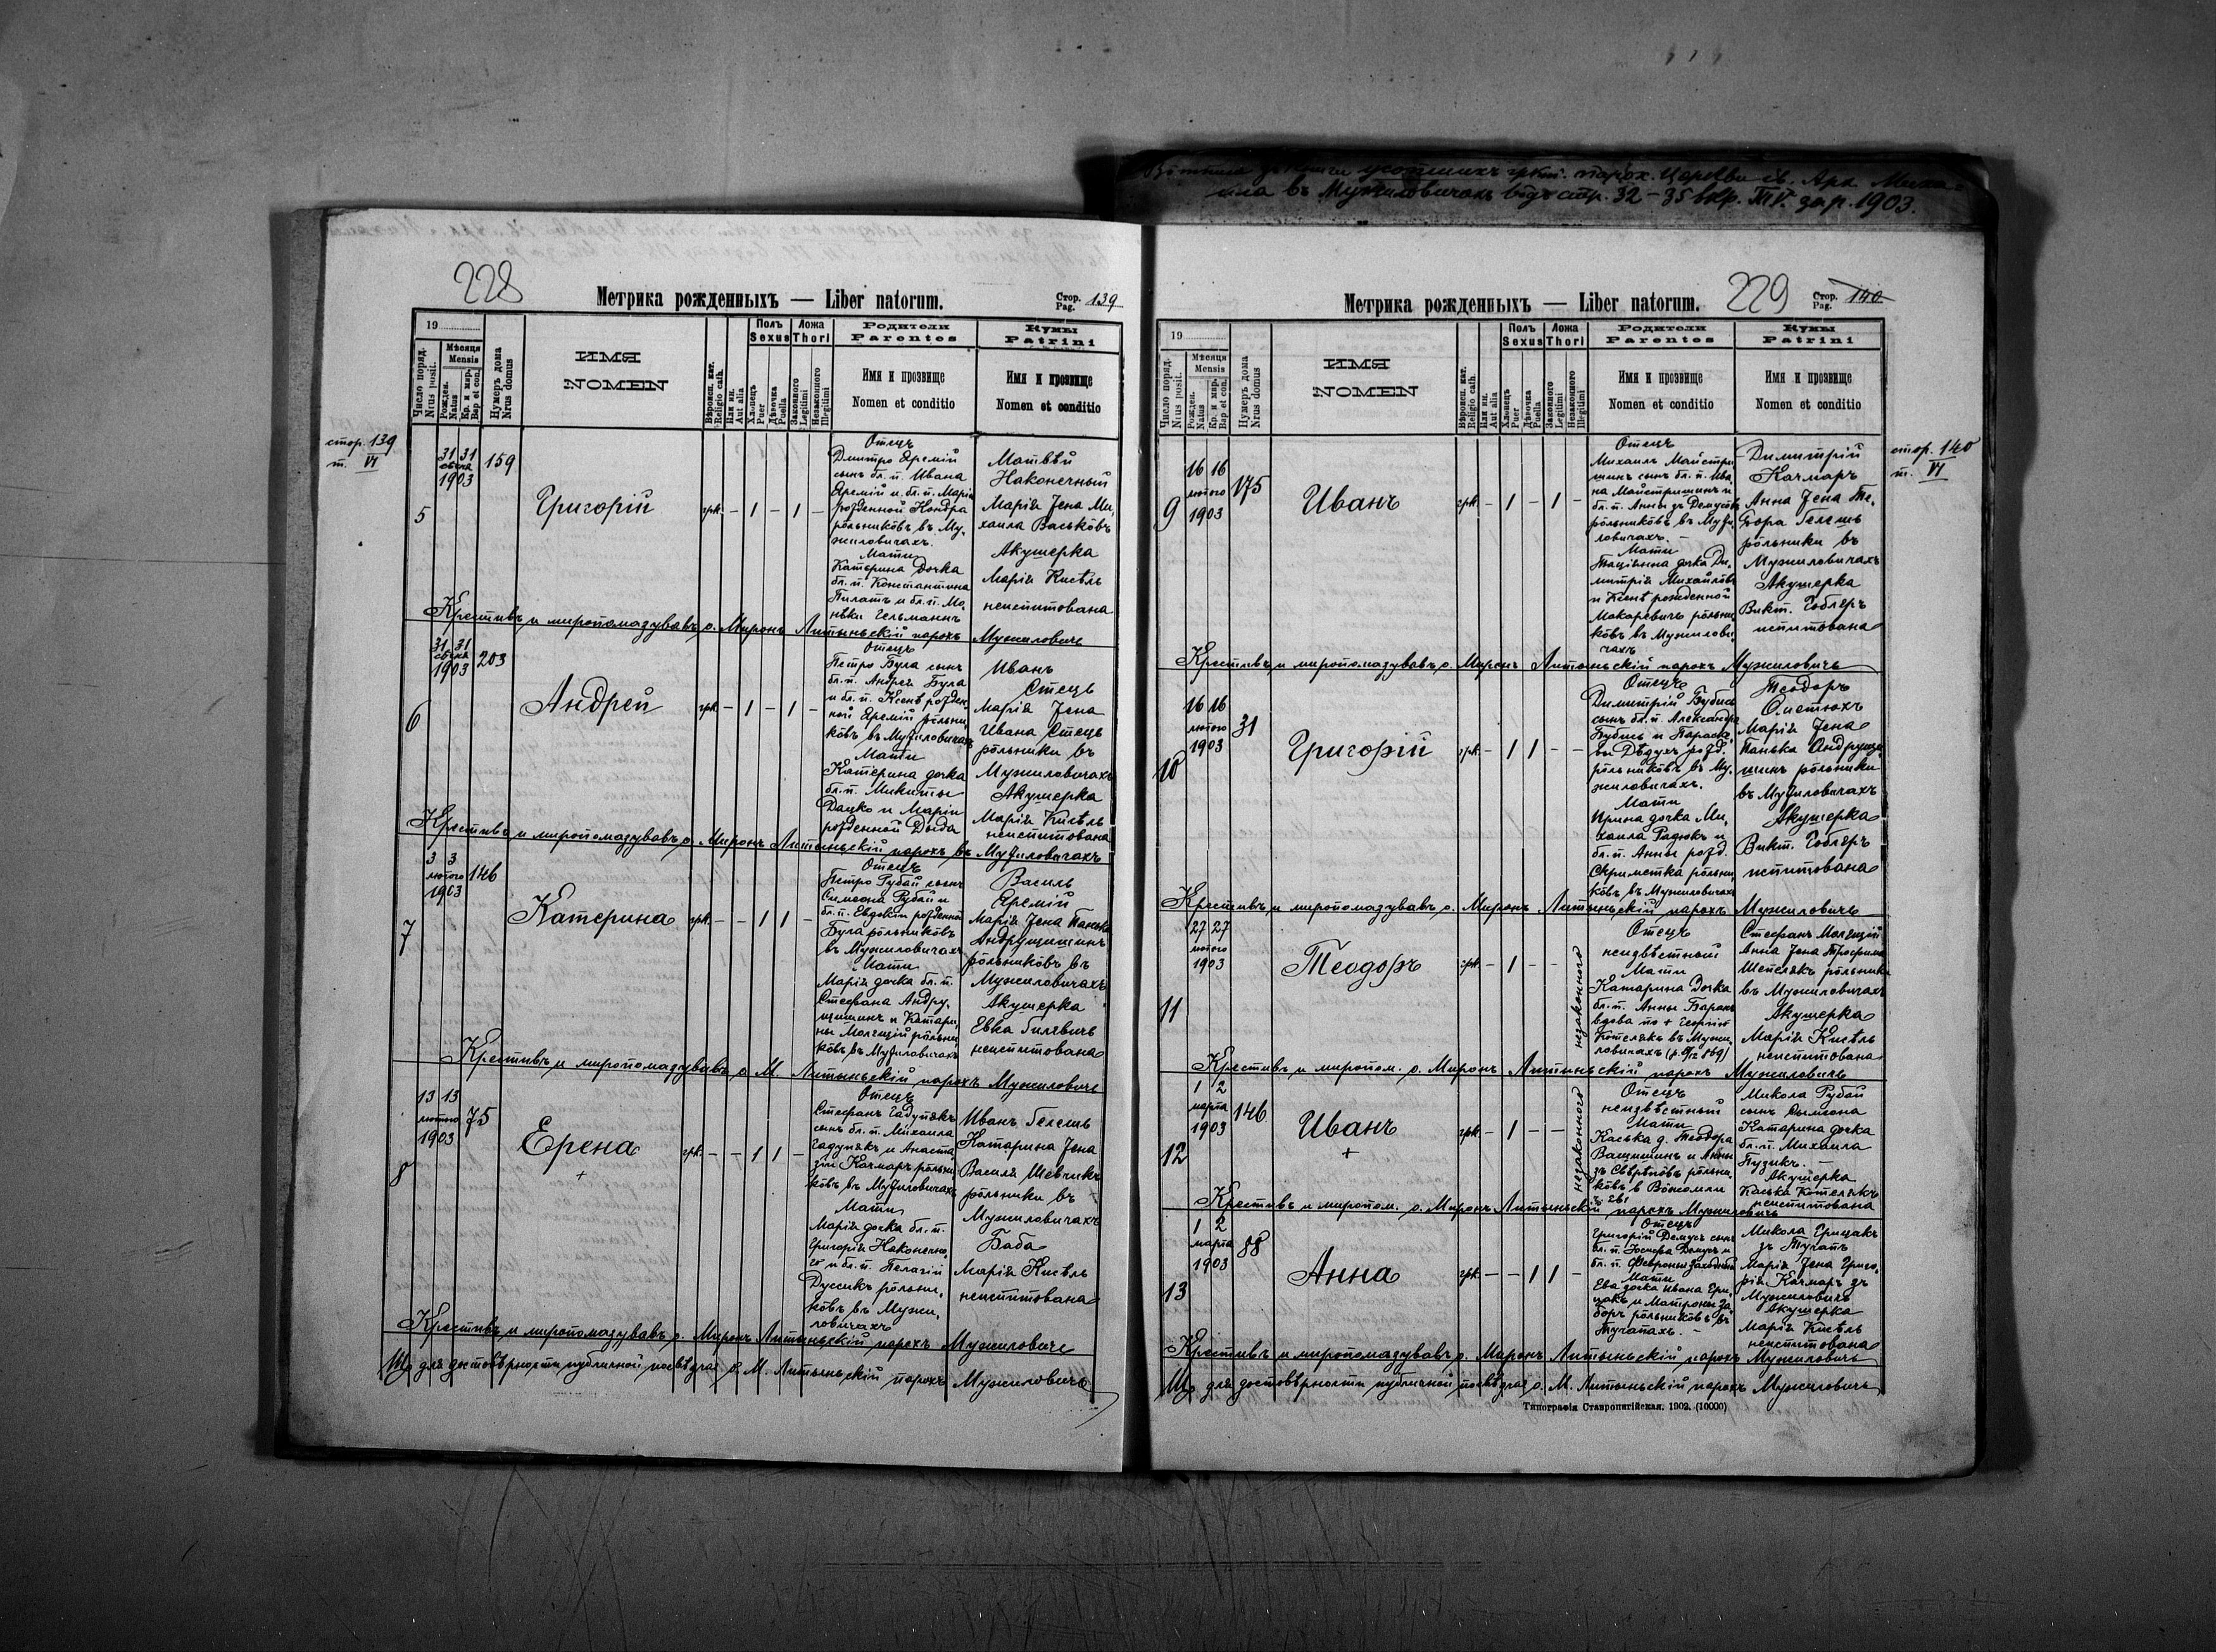 228
Метрика рожденныхъ — Liber natorum.
Стор. Pag. 139
19
Число поряд. Nrus posit.
Мѣсяця Mensis
Рожден. Natus
Кр. и мир. Bap et con.
Нумеръ дома Nrus domus
ИМЯ
NOMEN
Вѣроисп. кат. Religio cath.
Или ин. Aut alia
Полъ Sexus
Хлопецъ Puer
Дѣвочка Puella
Ложа Thori
Законного Legitimi
Незаконного Illegitimi
Родители
Parentes
Имя и прозвище
Nomen et conditio
Кумы
Patrini
Имя и прозвище
Nomen et conditio
стор. 139
т. VI
5
31 31
сѣчня
1903
159
Григорій
грк. – 1 – 1 –
Отецъ
Дмитро Яремій
сынъ бл. п. Ивана
Яремій и бл. п. Марія
рожденной Кондра
рôльникôвъ въ Му,
жиловичахъ.
Мати
Катерина дочка
бл. п. Константина
Пилатъ и бл. п. Мо,
Гельманъ
Матвѣй
Наконечный
Марія Jена Ми,
хаила Васькôвъ
Акушерка
Марія Кисѣль
неиспитована
Крестивъ и миропомазувавъ о. Миронъ Литыньскій парохъ Мужиловичъ
6
31 31
сѣчня
1903
203
Андрей
грк. – 1 – 1 –
Отецъ
Петро Була сынъ
бл. п. Андрея Була
и бл. п. Ксенѣ рожден
ной Яремій рôльни
кôвъ въ Мужиловичахъ
Мати
Катерина дочка
бл. п. Микиты
Дацко и Маріи
рожденной Дыда
Иванъ
Стець
Марія Jена
Ивана Стець
рôльники въ
Мужиловичахъ
Акушерка
Марія Кисѣль
неиспитована
Крестивъ и миропомазувавъ о. Миронъ Литыньскій парохъ въ Мужиловичахъ
7
3 3
лютого
1903
146
Катерина
грк. – – 1 1 –
Отецъ
Петро Рубай сынъ
Симеона Рубай и
бл. п. Евдокіи рожденной
Була рôльникôвъ
въ Мужиловичахъ
Мати
Марія дочка бл. п.
Стефана Андру,
щишинъ и Катари,
ны Молещій рôльни,
кôвъ въ Мужиловичахъ
Василь
Яремій
Марія Jена Панька
Андрущишинъ
рôльникôвъ въ
Мужиловичахъ
Акушерка
Евка Гилевичъ
неиспитована
Крестивъ и миропомазувавъ о. М. Литыньскій парохъ Мужиловичъ
8
13 13
лютого
1903
75
Ерена
+
грк. – – 1 1 –
Отецъ
Стефанъ Гадупякъ
сынъ бл. п. Михаила
Гадупякъ и Анаста,
зіи Качмаръ рôльни
кôвъ въ Мужиловичахъ
Мати
Марія дочка бл. п.
Григорія Наконечно,
го и бл. п. Пелагіи
Дуссикъ рôльни,
кôвъ въ Мужи,
ловичахъ
Иванъ Гелешъ
Катарина Jена
Василя Шевчикъ
рôльники въ
Мужиловичахъ
Баба
Марія Кисѣль
неиспитована
Крестивъ и миропомазувавъ о. Миронъ Литыньскій парохъ Мужиловичъ
Що для достовѣрности публичной посвѣдчае о. М. Литыньскій парохъ Мужиловичъ
усопшихъ гркт. парох. Церкви св. Арх. Миха-
ила въ Мужиловичахъ вôдъ стр. 32–35 вкр. Т. IV. за р. 1903.
229
Метрика рожденныхъ — Liber natorum.
Стор. Pag. 140
19
Число поряд. Nrus posit.
Мѣсяця Mensis
Рожден. Natus
Кр. и мир. Bap et con.
Нумеръ дома Nrus domus
ИМЯ
NOMEN
Вѣроисп. кат. Religio cath.
Или ин. Aut alia
Полъ Sexus
Хлопецъ Puer
Дѣвочка Puella
Ложа Thori
Законного Legitimi
Незаконного Illegitimi
Родители
Parentes
Имя и прозвище
Nomen et conditio
Кумы
Patrini
Имя и прозвище
Nomen et conditio
стор. 140
т. VI
9
16 16
лютого
1903
175
Иванъ
грк. – 1 – 1 –
Отецъ
Михаилъ Майстри
шинъ сынъ бл. п. Ива
на Майстришинъ и
бл. п. Анны зъ Демусôвъ
рôльникôвъ въ Мужи
ловичахъ. –
Мати
Таціанна дочка Ди,
митрія Михайлôвъ
и Ксенѣ рожденной
Макаревичъ рôльни
кôвъ въ Мужилови,
чахъ
Димитрій
Качмаръ
Анна Jена Те,
Гелешъ
рôльники въ
Мужиловичахъ
Акушерка
Викт. Гоблеръ
испитована
Крестивъ и миропомазувавъ о. Миронъ Литыньскій парохъ Мужиловичъ
10
16 16
лютого
1903
31
Григорій
грк. – 1 1 – –
Отецъ
Димитрій Бубись
сынъ бл. п. Александра
Бубись и Параск,
вы Дѣдухъ рожд.
рôльникôвъ въ Му,
жиловичахъ.
Мати
Ирина дочка Ми,
хаила Радюкъ и
бл. п. Анны рожд.
Скриметка рôльни,
кôвъ въ Мужиловичахъ
Теодоръ
Олистюхъ
Марія Jена
Панька Андрущи
шинъ рôльники
въ Мужиловичахъ
Акушерка
Викт. Гоблеръ
испитована
Крестивъ и миропомазувавъ о. Миронъ Литыньскій парохъ Мужиловичъ
11
27 27
лютого
1903
Теодоръ
грк. – 1 – –
незаконного
Отецъ
неизвѣстный
Мати
Катарина дочка
бл. п. Анны Баранъ
вдова по + Георгію
Котелякъ въ Мужи,
ловичахъ
Стефанъ Молещій
Анна Jена Трофима
Шепелякъ рôльники
въ Мужиловичахъ
Акушерка
Марія Кисѣль
неиспитована
Крестивъ и миропом. о. Миронъ Литыньскій парохъ Мужиловичъ
12
1 2
марта
1903
146
Иванъ
+
грк. – 1 – –
незаконного
Отецъ
неизвѣстный
Мати
Каська д. Теодора
Ващишинъ и Анны
рôльни,
кôвъ в
Микола Рубай
сынъ Сымеона
Катарина дочка
бл. п. Михаила
Пузикъ. –
Акушерка
Каська Котелякъ
неиспитована
Крестивъ и миропом. о. Миронъ Литыньскій парохъ Мужиловичъ
13
1 2
марта
1903
88
Анна
грк. – – 1 1 –
Отецъ
Григорій Демусъ сынъ
бл. п. Іосифа Демусъ и
бл. п. Февроніи Заходный
Мати
Ева дочка Ивана Гри,
цакъ и Матроны За,
боръ рôльникôвъ въ
Тучапахъ. –
Микола Грицакъ
зъ Тучапъ
Марія Jена Григо,
рія Качмаръ зъ
Мужиловичъ
Акушерка
Марія Кисѣль
неиспитована
Крестивъ и миропомазувавъ о. Миронъ Литыньскій парохъ Мужиловичъ
Що для достовѣрности публичной посвѣдчае о. М. Литыньскій парохъ Мужиловичъ
Типографія Ставропигійская. 1902. (10000)